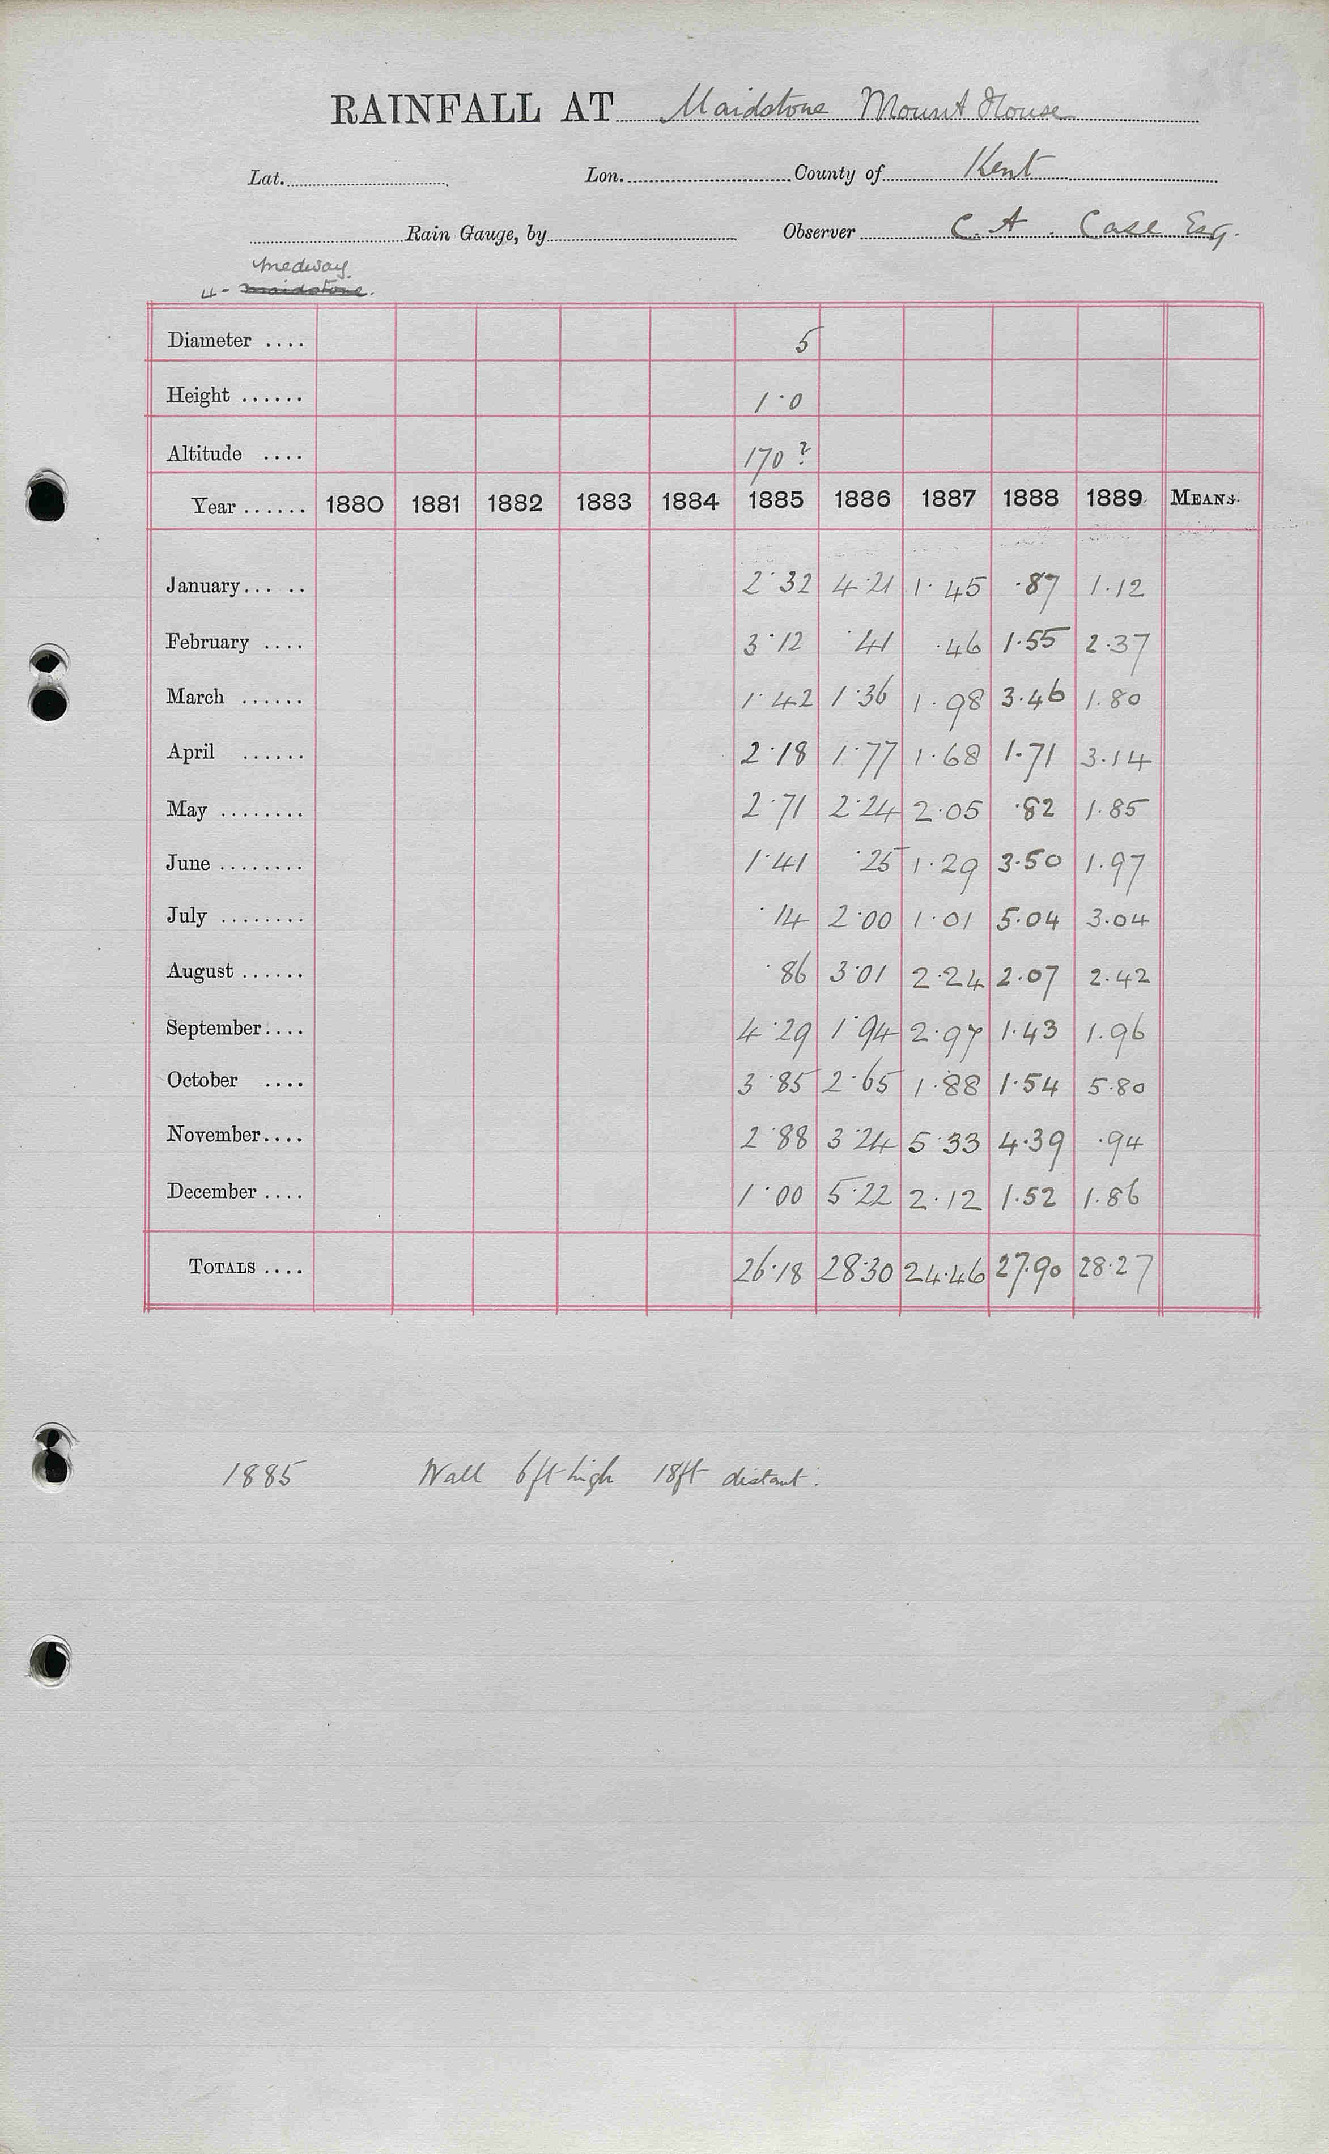 RAINFALL AT Maidstone Mount House
Lat. Lon. County of Kent
Rain Gauge, by Observer C. A. Case Esq.
Medway
4 - Maidstone.
Diameter .... 5
Height ...... 1·0
Altitude .... 170?
Year ...... 1880 1881 1882 1883 1884 1885 1886 1887 1888 1889 MEANS.
January... .. 2·32 4·21 1·45 ·87 1·12
February .... 3·12 ·41 ·46 1·55 2·37
March ...... 1·42 1·36 1·98 3·46 1·80
April ...... 2·18 1·77 1·68 1·71 3·14
May ........ 2·71 2·24 2·05 ·82 1·85
June ........ 1·41 ·25 1·29 3·50 1·97
July ........ ·14 2·00 1·01 5·04 3·04
August ...... ·86 3·01 2·24 2·07 2·42
September.... 4·29 1·94 2·97 1·43 1·96
October .... 3·85 2·65 1·88 1·54 5·80
November.... 2·88 3·24 5·33 4·39 ·94
December .... 1·00 5·22 2·12 1·52 1·86
TOTALS .... 26·18 28·30 24·46 27·90 28·27
1885 Wall 6ft high 18ft distant.